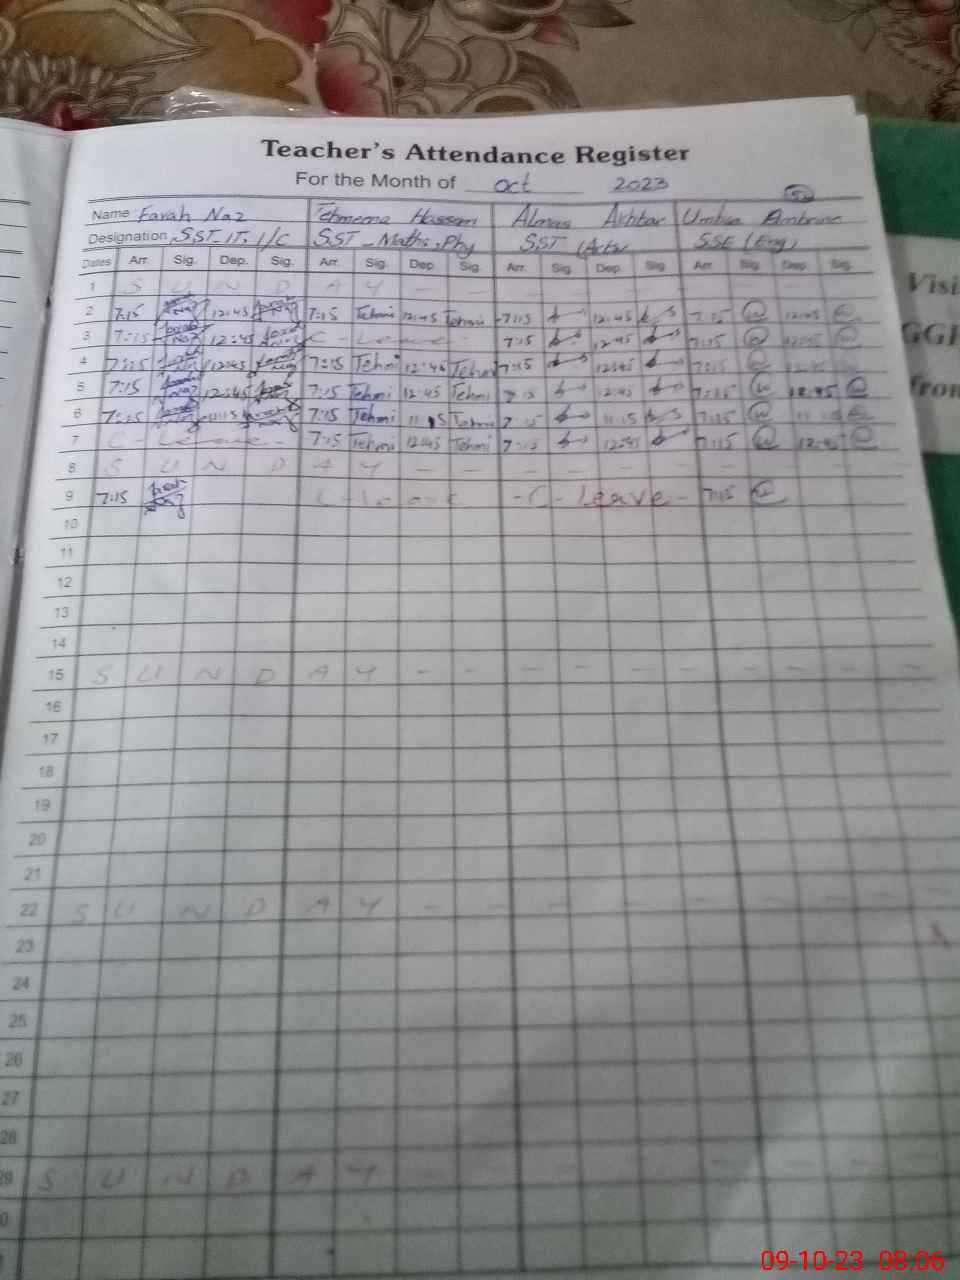 Teacher's Attendance Register
For the Month of Oct 2023
Name Farah Naz Tehmeena Hassan Almas Akhtar Ambrine
Designation SST-IT, I/C SST-Maths,Phy SST (Arts) SSE (Eng)
Dates Arr. Sig. Dep. Sig. Arr. Sig. Dep. Sig. Arr. Sig. Dep. Sig. Arr. Sig. Dep. Sig.
1 S U N D A Y - - - - - -
2 7:15 12:45 7:15 Tehmi 12:45 Tehmi 7:15 12:45 7:15 12:45
3 7:15 12:45 C - Leave - 7:15 12:45 7:15 12:45
4 7:15 12:45 7:15 Tehmi 12:45 Tehmi 7:15 12:45 7:15
5 7:15 12:45 7:15 Tehmi 12:45 Tehmi 7:15 12:45 7:15 12:45
6 7:15 11:15 7:15 Tehmi 11:15 Tehmi 7:15 11:15 7:15 11:15
7 C - Leave - 7:15 Tehmi 12:45 Tehmi 7:15 12:45 7:15 12:45
8 S U N D A Y - - - - - -
9 7:15 C - Leave - C - Leave - 7:15
10
11
12
13
14
15 S U N D A Y - - - - - - - - -
16
17
18
19
20
21
22 S U N D A Y - - - - - - - - -
23
24
25
26
27
28
29 S U N D A Y - - - - - - - -
Visi
GGH
from
09-10-23 08:06